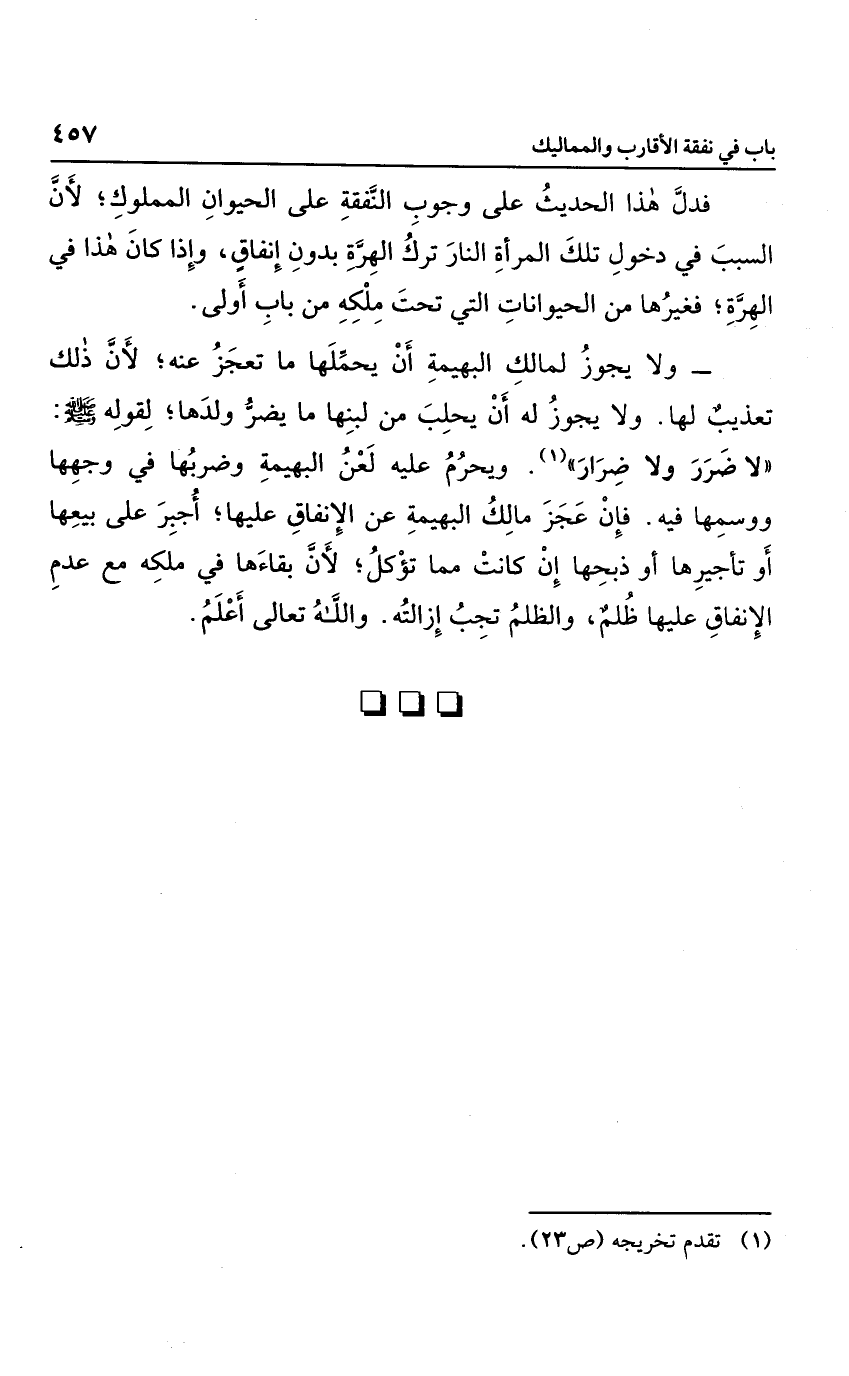 باب في نفقة الأقارب والمماليك
٤٥٧
فدلَّ هٰذا الحديثُ على وجوبِ النَّفقةِ على الحيوانِ المملوكِ؛ لأَنَّ
السببَ في دخولِ تلكَ المرأةِ النارَ تركُ الهِرَّةِ بدونِ إِنفاقٍ، وإِذا كانَ هٰذا في
الهِرَّةِ؛ فغيرُها من الحيواناتِ التي تحتَ مِلْكِهِ من بابِ أَولى.
ــ ولا يجوزُ لمالكِ البهيمةِ أَنْ يحمِّلَها ما تعجَزُ عنه؛ لأَنَّ ذٰلك
تعذيبٌ لها. ولا يجوزُ له أَنْ يحلِبَ من لبنِها ما يضرُّ ولدَها؛ لِقولِه ﷺ:
«لا ضَرَرَ ولا ضِرَارَ»(١). ويحرُمُ عليه لَعْنُ البهيمةِ وضربُها في وجهِها
ووسمِها فيه. فإِنْ عَجَزَ مالِكُ البهيمةِ عن الإِنفاقِ عليها؛ أُجبِرَ على بيعِها
أَو تأجيرِها أو ذبحِها إِنْ كانتْ مما تؤْكلُ؛ لأَنَّ بقاءَها في ملكِه مع عدمِ
الإِنفاقِ عليها ظُلمٌ، والظلمُ تجِبُ إِزالتُه. واللَّـهُ تعالى أَعْلَمُ.
(١) تقدم تخريجه (ص٢٣).